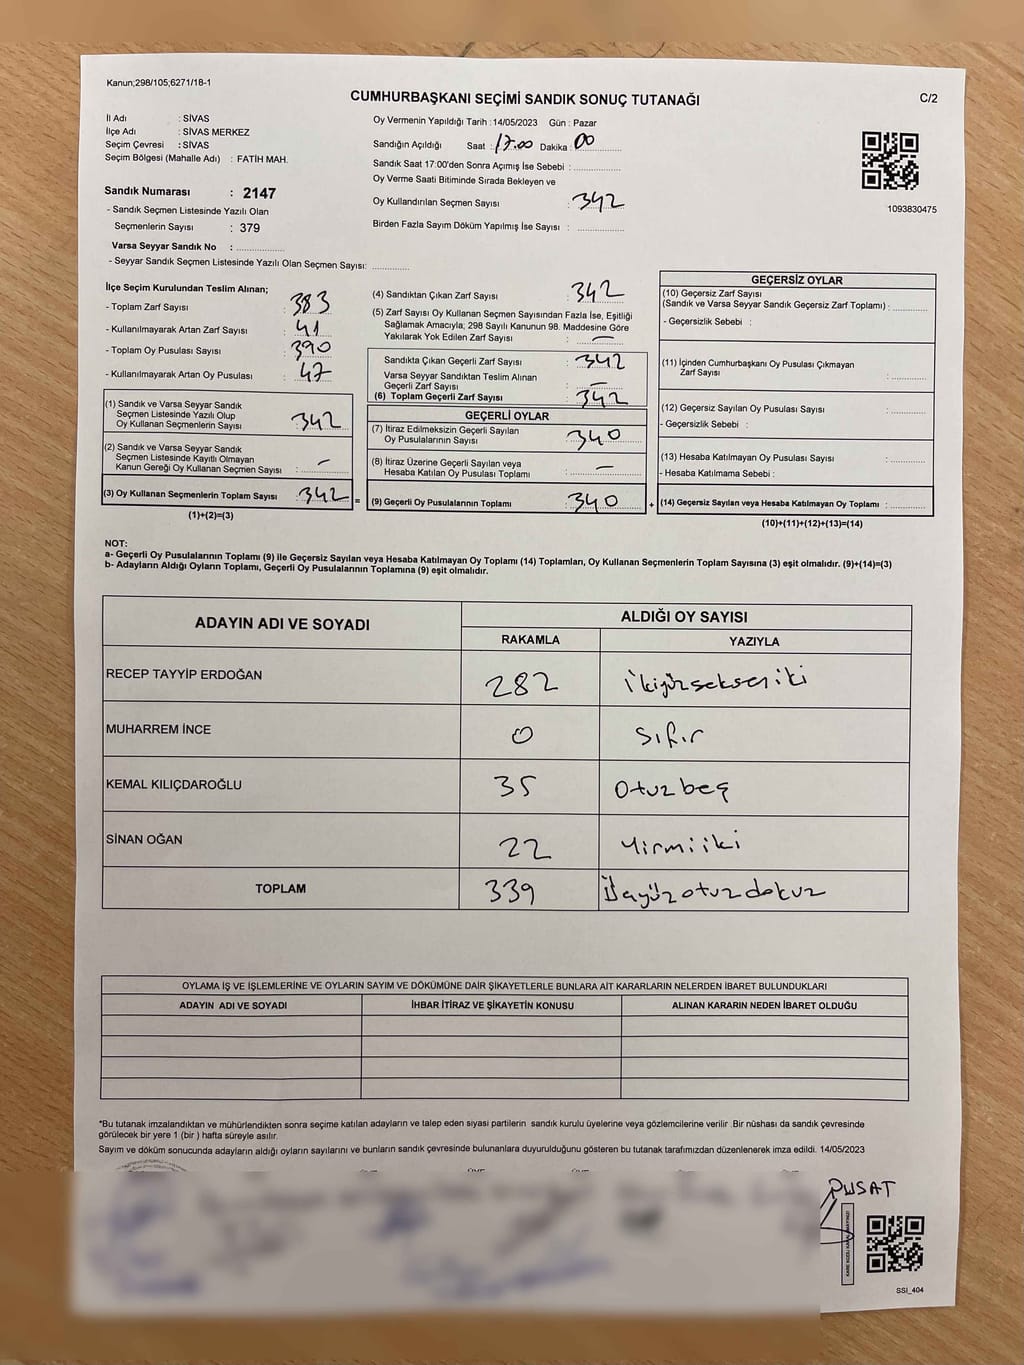 Kanun;298/105;6271/18-1
CUMHURBAŞKANI SEÇİMİ SANDIK SONUÇ TUTANAĞI
C/2
İl Adı : SİVAS
İlçe Adı : SİVAS MERKEZ
Seçim Çevresi : SİVAS
Seçim Bölgesi (Mahalle Adı) : FATİH MAH.
Sandık Numarası : 2147
- Sandık Seçmen Listesinde Yazılı Olan
Seçmenlerin Sayısı : 379
Varsa Seyyar Sandık No : ................
- Seyyar Sandık Seçmen Listesinde Yazılı Olan Seçmen Sayısı: ............
Oy Vermenin Yapıldığı Tarih : 14/05/2023 Gün : Pazar
Sandığın Açıldığı Saat : 17.00 Dakika : 00
Sandık Saat 17:00'den Sonra Açımış İse Sebebi : ................
Oy Verme Saati Bitiminde Sırada Bekleyen ve
Oy Kullandırılan Seçmen Sayısı : 342
Birden Fazla Sayım Döküm Yapılmış İse Sayısı : ................
1093830475
İlçe Seçim Kurulundan Teslim Alınan;
- Toplam Zarf Sayısı : 383
- Kullanılmayarak Artan Zarf Sayısı : 41
- Toplam Oy Pusulası Sayısı : 390
- Kullanılmayarak Artan Oy Pusulası : 47
(1) Sandık ve Varsa Seyyar Sandık
Seçmen Listesinde Yazılı Olup
Oy Kullanan Seçmenlerin Sayısı : 342
(2) Sandık ve Varsa Seyyar Sandık
Seçmen Listesinde Kayıtlı Olmayan
Kanun Gereği Oy Kullanan Seçmen Sayısı : –
(3) Oy Kullanan Seçmenlerin Toplam Sayısı : 342 =
(1)+(2)=(3)
(4) Sandıktan Çıkan Zarf Sayısı : 342
(5) Zarf Sayısı Oy Kullanan Seçmen Sayısından Fazla İse, Eşitliği
Sağlamak Amacıyla; 298 Sayılı Kanunun 98. Maddesine Göre
Yakılarak Yok Edilen Zarf Sayısı : –
Sandıkta Çıkan Geçerli Zarf Sayısı : 342
Varsa Seyyar Sandıktan Teslim Alınan
Geçerli Zarf Sayısı : –
(6) Toplam Geçerli Zarf Sayısı : 342
GEÇERLİ OYLAR
(7) İtiraz Edilmeksizin Geçerli Sayılan
Oy Pusulalarının Sayısı : 340
(8) İtiraz Üzerine Geçerli Sayılan veya
Hesaba Katılan Oy Pusulası Toplamı : –
(9) Geçerli Oy Pusulalarının Toplamı : 340 +
GEÇERSİZ OYLAR
(10) Geçersiz Zarf Sayısı
(Sandık ve Varsa Seyyar Sandık Geçersiz Zarf Toplamı) : ............
- Geçersizlik Sebebi :
(11) İçinden Cumhurbaşkanı Oy Pusulası Çıkmayan
Zarf Sayısı : ............
(12) Geçersiz Sayılan Oy Pusulası Sayısı : ............
- Geçersizlik Sebebi :
(13) Hesaba Katılmayan Oy Pusulası Sayısı : ............
- Hesaba Katılmama Sebebi :
(14) Geçersiz Sayılan veya Hesaba Katılmayan Oy Toplamı : ............
(10)+(11)+(12)+(13)=(14)
NOT:
a- Geçerli Oy Pusulalarının Toplamı (9) ile Geçersiz Sayılan veya Hesaba Katılmayan Oy Toplamı (14) Toplamları, Oy Kullanan Seçmenlerin Toplam Sayısına (3) eşit olmalıdır. (9)+(14)=(3)
b- Adayların Aldığı Oyların Toplamı, Geçerli Oy Pusulalarının Toplamına (9) eşit olmalıdır.
ADAYIN ADI VE SOYADI
ALDIĞI OY SAYISI
RAKAMLA YAZIYLA
RECEP TAYYİP ERDOĞAN 282 ikiyüzsekseniki
MUHARREM İNCE 0 sıfır
KEMAL KILIÇDAROĞLU 35 Otuzbeş
SİNAN OĞAN 22 Yirmiiki
TOPLAM 339 üçyüzotuzdokuz
OYLAMA İŞ VE İŞLEMLERİNE VE OYLARIN SAYIM VE DÖKÜMÜNE DAİR ŞİKAYETLERLE BUNLARA AİT KARARLARIN NELERDEN İBARET BULUNDUKLARI
ADAYIN ADI VE SOYADI İHBAR İTİRAZ VE ŞİKAYETİN KONUSU ALINAN KARARIN NEDEN İBARET OLDUĞU
*Bu tutanak imzalandıktan ve mühürlendikten sonra seçime katılan adayların ve talep eden siyasi partilerin sandık kurulu üyelerine veya gözlemcilerine verilir .Bir nüshası da sandık çevresinde
görülecek bir yere 1 (bir ) hafta süreyle asılır.
Sayım ve döküm sonucunda adayların aldığı oyların sayılarını ve bunların sandık çevresinde bulunanlara duyurulduğunu gösteren bu tutanak tarafımızdan düzenlenerek imza edildi. 14/05/2023
PUSAT
SSI_404